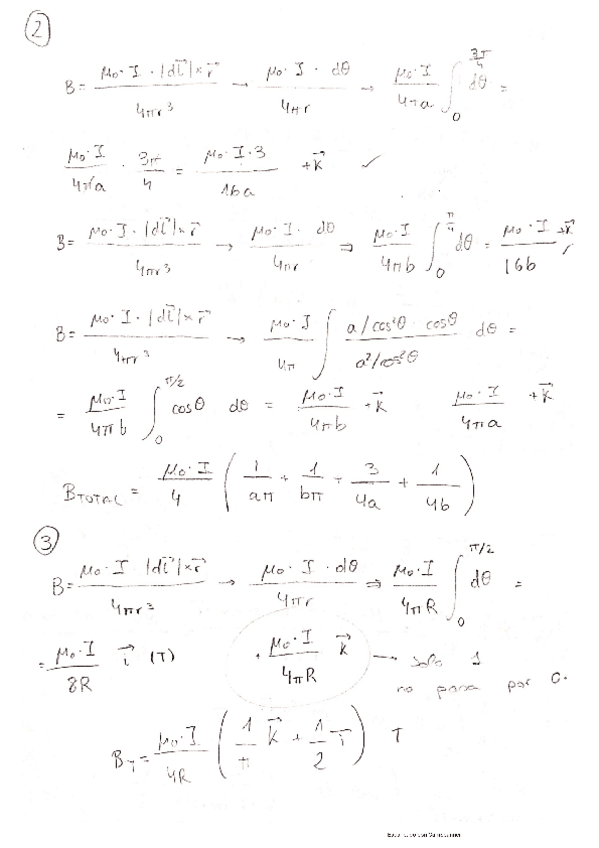 2
B = μ₀·I·|dl⃗|×r⃗ / 4πr³ → μ₀·I·dθ / 4πr → μ₀·I / 4πa ∫₀^(3π/4) dθ =
μ₀·I / 4πa · 3π / 4 = μ₀·I·3 / 16a +k⃗ ✓
B = μ₀·I·|dl⃗|×r⃗ / 4πr³ → μ₀·I·dθ / 4πr ⇒ μ₀·I / 4πb ∫₀^(π/4) dθ = μ₀·I / 16b +k⃗ ✓
B = μ₀·I·|dl⃗|×r⃗ / 4πr³ → μ₀·I / 4π ∫ a/cos²θ · cosθ / a²/cos²θ dθ =
= μ₀·I / 4πb ∫₀^(π/2) cosθ dθ = μ₀·I / 4πb +k⃗ μ₀·I / 4πa +k⃗
B_TOTAL = μ₀·I / 4 ( 1 / aπ + 1 / bπ + 3 / 4a + 1 / 4b )
3
B = μ₀·I |dl⃗|×r⃗ / 4πr³ → μ₀·I·dθ / 4πr ⇒ μ₀·I / 4πR ∫₀^(π/2) dθ =
= μ₀·I / 8R i⃗ (T) + μ₀·I / 4πR k⃗ → solo 1
no pasa por C.
B_T = μ₀·I / 4R ( 1 / π k⃗ + 1 / 2 i⃗ ) T